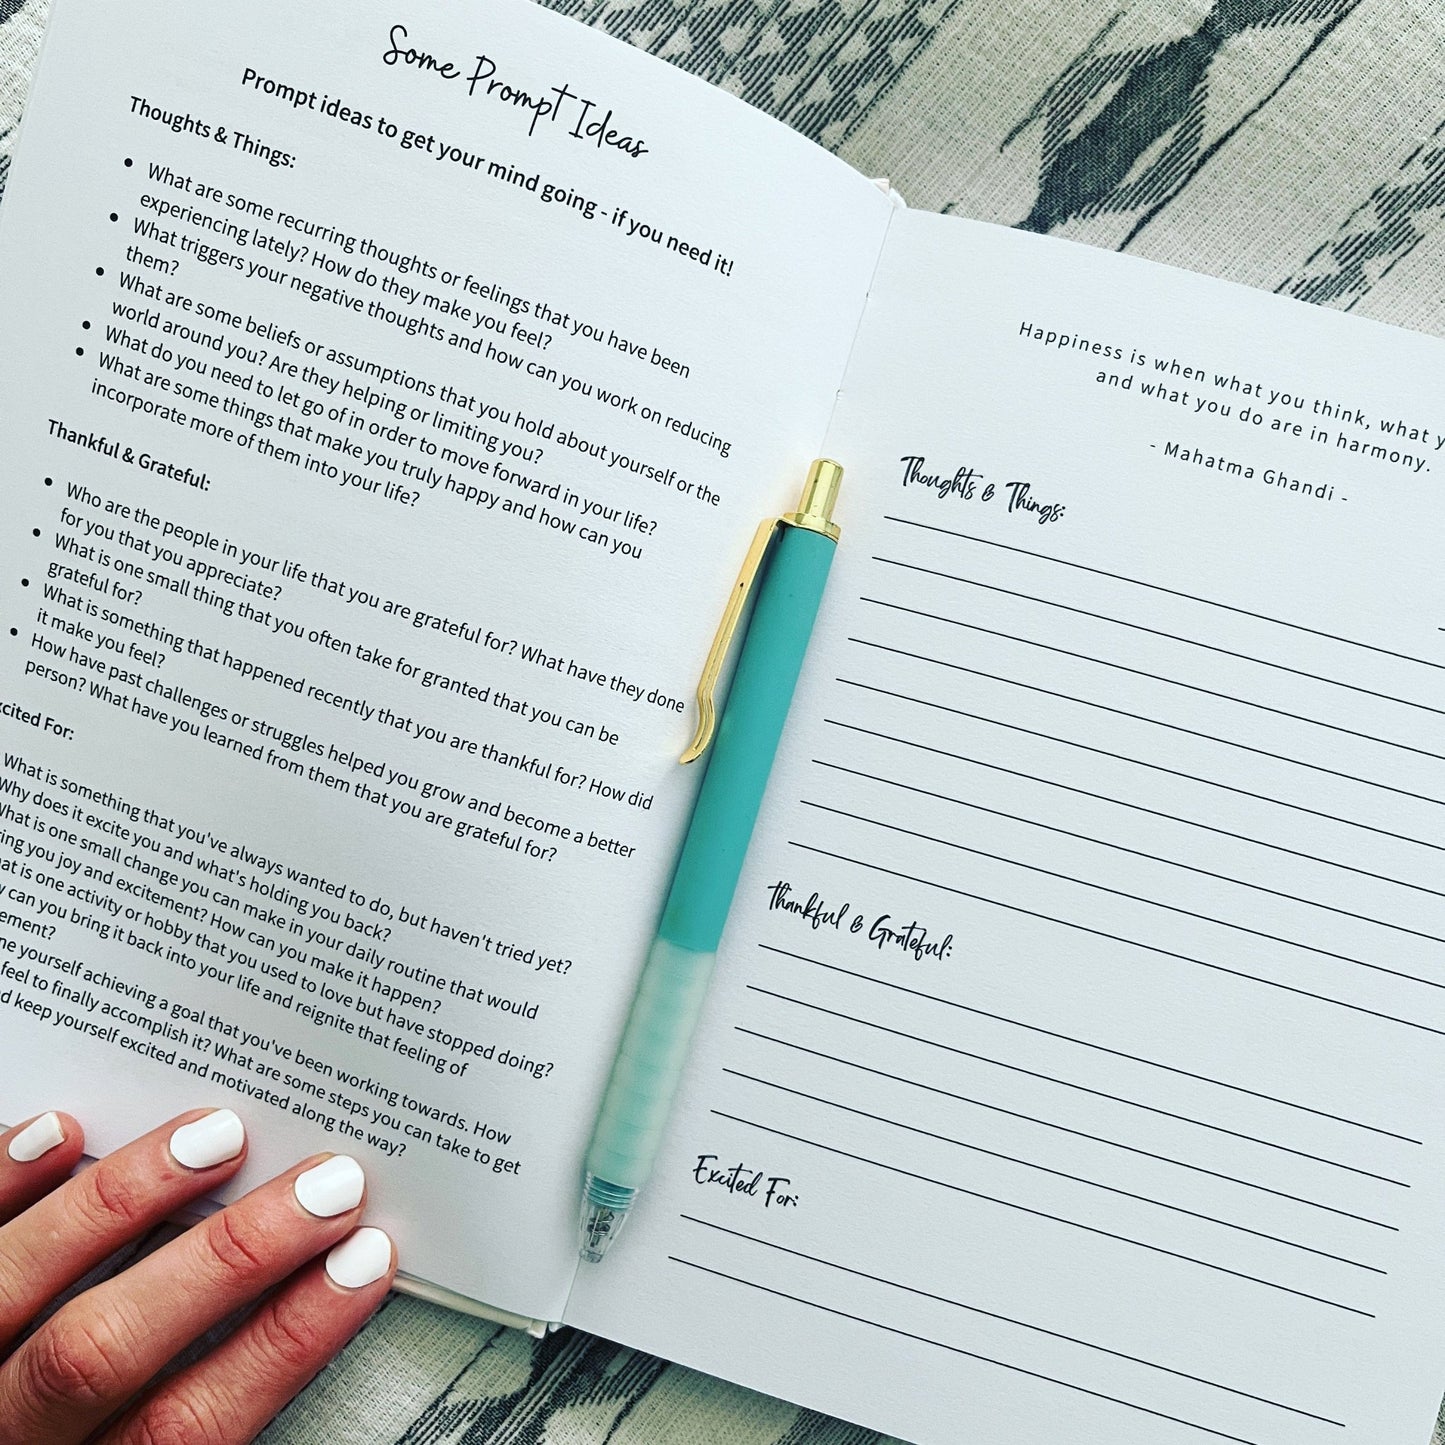 Some Prompt Ideas
Prompt ideas to get your mind going - if you need it!
Thoughts & Things:
• What are some recurring thoughts or feelings that you have been
experiencing lately? How do they make you feel?
• What triggers your negative thoughts and how can you work on reducing
them?
• What are some beliefs or assumptions that you hold about yourself or the
world around you? Are they helping or limiting you?
• What do you need to let go of in order to move forward in your life?
• What are some things that make you truly happy and how can you
incorporate more of them into your life?
Thankful & Grateful:
• Who are the people in your life that you are grateful for? What have they done
for you that you appreciate?
• What is one small thing that you often take for granted that you can be
grateful for?
• What is something that happened recently that you are thankful for? How did
it make you feel?
• How have past challenges or struggles helped you grow and become a better
person? What have you learned from them that you are grateful for?
cited For:
What is something that you've always wanted to do, but haven't tried yet?
Why does it excite you and what's holding you back?
What is one small change you can make in your daily routine that would
ring you joy and excitement? How can you make it happen?
at is one activity or hobby that you used to love but have stopped doing?
w can you bring it back into your life and reignite that feeling of
ement?
ne yourself achieving a goal that you've been working towards. How
feel to finally accomplish it? What are some steps you can take to get
d keep yourself excited and motivated along the way?
Happiness is when what you think, what y
and what you do are in harmony.
- Mahatma Ghandi -
Thoughts & Things:
Thankful & Grateful:
Excited For: